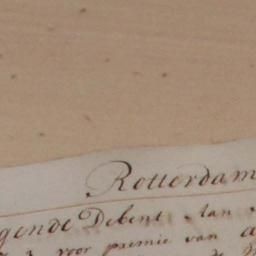 Rotterdam
gende Debent Aan
voor premie van a